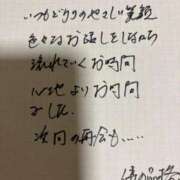 いつもどうりのやさしい笑顔
色々なお話しをしながら
流れていくお時間
心地よりお時間
でした.
次回の再会も.....